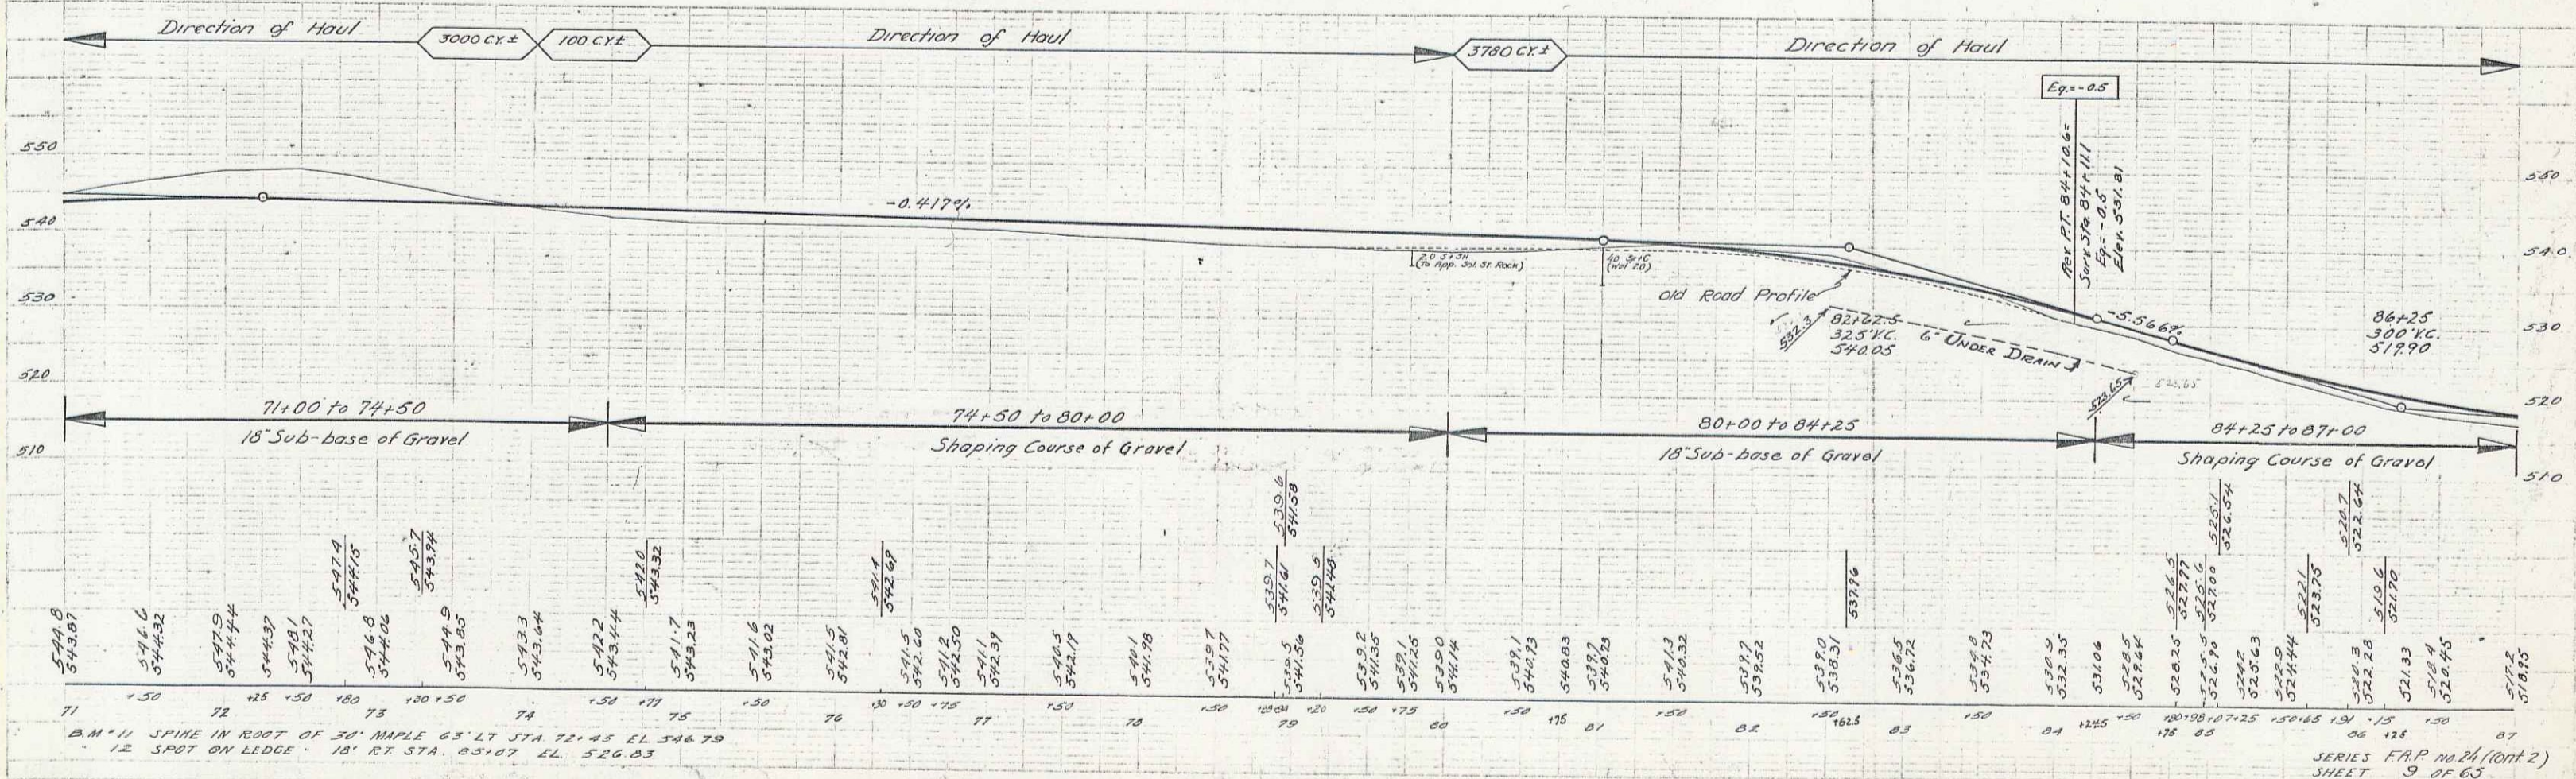 Direction of Haul
3000 C.Y.±
100 C.Y.±
Direction of Haul
3780 C.Y.±
Direction of Haul
Eq.=-0.5
Rev. P.T. 84+10.6=
Surv. Sta. 84+11.1
Eq.= -0.5
Elev. 531.81
550
540
530
520
510
550
540
530
520
510
-0.417%
(To App. Sol. St. Rock)
Old Road Profile
532.3
82+62.5
325' V.C.
540.05
6" UNDER DRAIN
-5.566%
523.65
523.65
86+25
300' V.C.
519.90
71+00 to 74+50
18" Sub-base of Gravel
74+50 to 80+00
Shaping Course of Gravel
80+00 to 84+25
18" Sub-base of Gravel
84+25 to 87+00
Shaping Course of Gravel
547.4
544.15
545.7
543.94
542.0
543.32
541.4
542.69
539.7
541.61
539.6
541.58
539.5
541.48
537.96
526.5
527.97
525.6
527.00
525.1
526.54
522.1
523.75
520.7
522.64
519.6
521.70
544.8
543.87
546.6
544.32
547.9
544.44
544.37
548.1
544.27
546.8
544.06
544.9
543.85
543.3
543.64
542.2
543.44
541.7
543.23
541.6
543.02
541.5
542.81
541.5
542.60
541.2
542.50
541.1
542.39
540.5
542.19
540.1
541.98
539.7
541.77
539.5
541.56
539.2
541.35
539.1
541.25
539.0
541.14
539.1
540.93
540.83
539.7
540.73
541.3
540.32
539.7
539.52
539.0
538.31
536.5
536.72
534.8
534.73
530.9
532.35
531.06
528.5
529.64
528.25
525.5
526.90
524.2
525.63
522.9
524.44
520.3
522.28
521.33
518.4
520.45
517.2
518.95
71 +50 72 +25 +50 +80 73 +30 +50 74 +50 +77 75 +50 76 +30 +50 +75 77 +50 78 +50 79 +20 +50 +75 80 +50 +75 81 +50 82 +50 +62.5 83 +50 84 +24.5 +50 +75 +80 +98 85 +07 +25 +50 +65 +91 86 +15 +25 +50 87
B.M #11 SPIKE IN ROOT OF 30" MAPLE 63' LT STA. 72+45 EL 546.79
" 12 SPOT ON LEDGE - 18' RT. STA. 85+07 EL. 526.83
SERIES F.A.P. No.24 (Cont. 2)
SHEET 9 OF 65